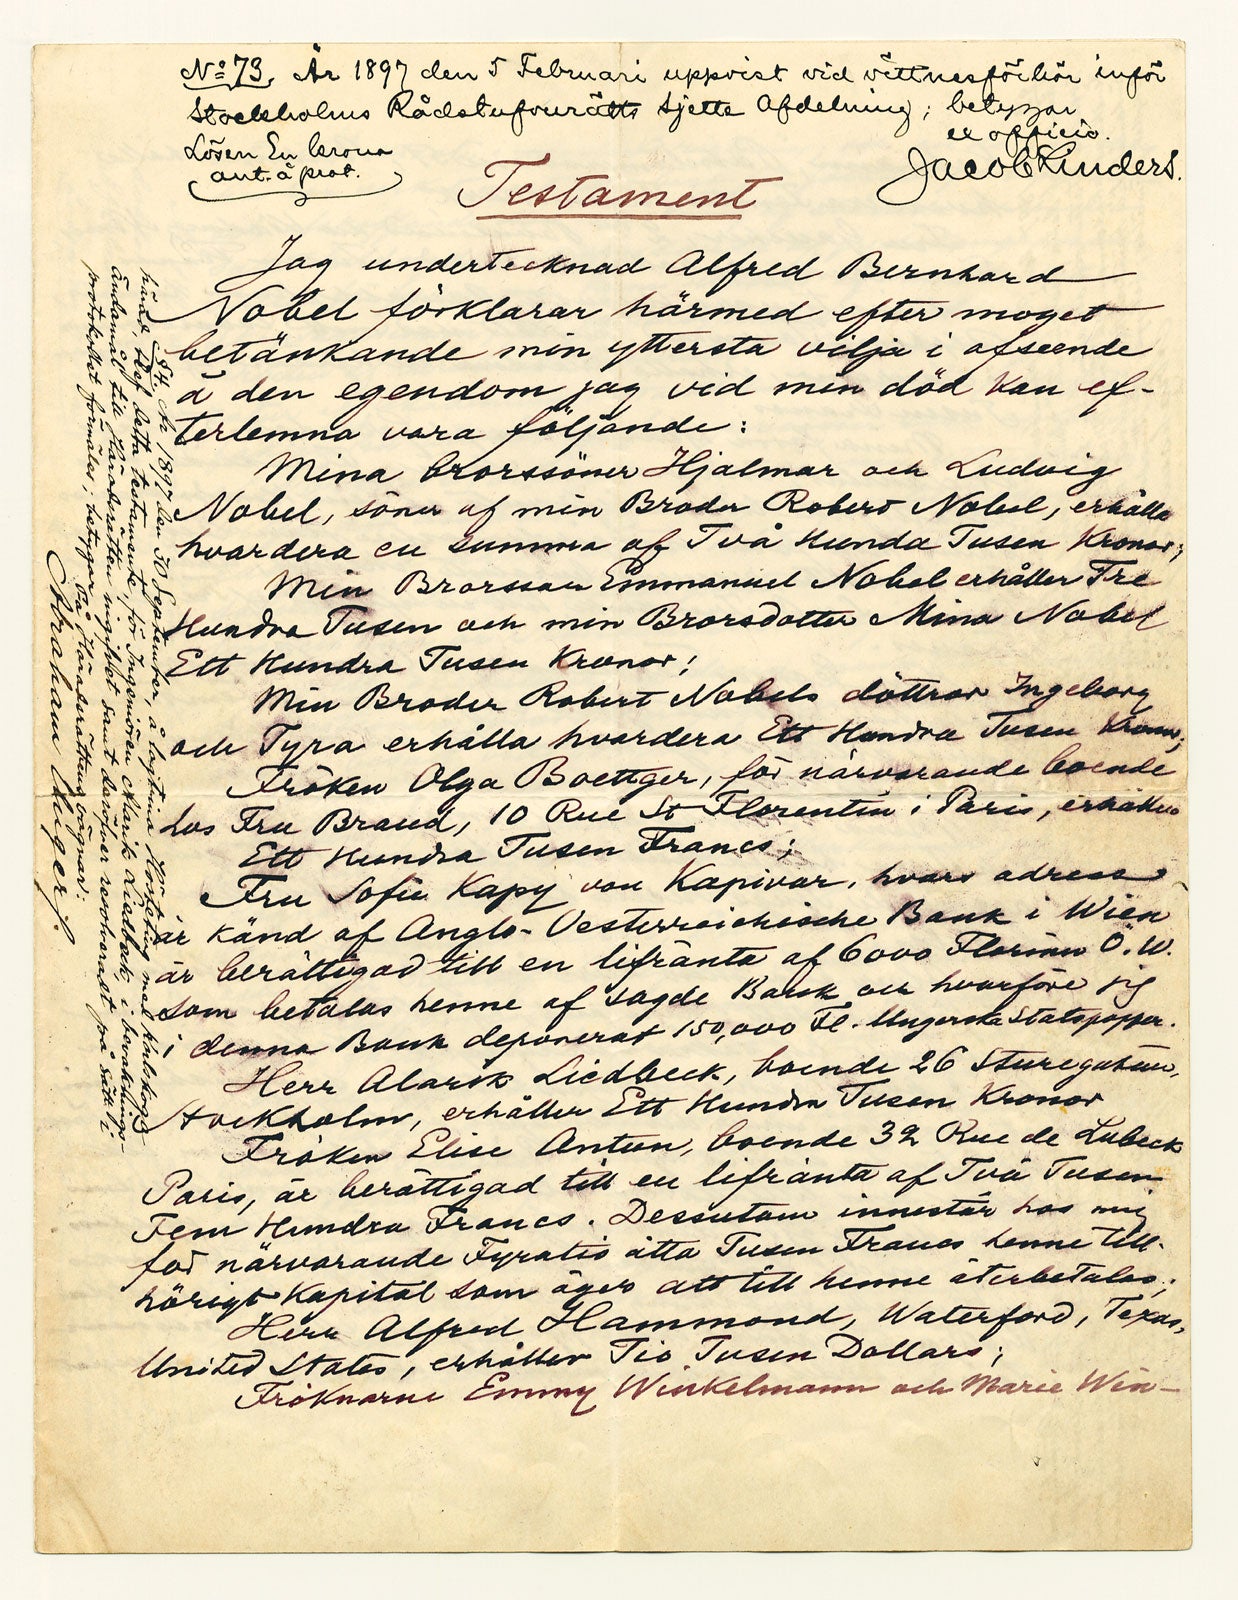 No 73. År 1897 den 5 Februari uppvist vid vittnesförhör inför
Stockholms Rådstufvurätts Sjette Afdelning; betygar
ex officio.
Lösen En krona
ant. å prot.
Testament
Jag undertecknad Alfred Bernhard
Nobel förklarar härmed efter moget
betänkande min yttersta vilja i afseende
å den egendom jag vid min död kan ef-
terlemna vara följande:
Mina brorssöner Hjalmar och Ludvig
Nobel, söner af min Broder Robert Nobel, erhålla
hvardera en summa af Två Hunda Tusen Kronor;
Min Brorsson Emmanuel Nobel erhåller Tre
Hundra Tusen och min Brorsdotter Mina Nobel
Ett Hundra Tusen Kronor;
Min Broder Robert Nobels döttrar Ingeborg
och Tyra erhålla hvardera Ett Hundra Tusen Kronor;
Fröken Olga Boettger, för närvarande boende
hos Fru Brand, 10 Rue St Florentin i Paris, erhåller
Ett Hundra Tusen Francs;
Fru Sofie Kapy von Kapivar, hvars adress
är känd af Anglo-Oesterreichische Bank i Wien
är berättigad till en lifränta af 6000 Florins Ö.W.
som betalas henne af sagde Bank och hvarföre jag
i denna Bank deponerat 150,000 Fl. Ungerska Statspapper.
Herr Alarik Liedbeck, boende 26 Sturegatan,
Stockholm, erhåller Ett Hundra Tusen Kronor
Fröken Elise Antun, boende 32 Rue de Lubeck
Paris, är berättigad till en lifränta af Två Tusen
Fem Hundra Francs. Dessutom innestår hos mig
för närvarande Fyratio åtta Tusen Francs henne till-
hörigt Kapital som äger att till henne återbetalas;
Herr Alfred Hammond, Waterford, Texas,
United States, erhåller Tio Tusen Dollars;
Fröknarne Emmy Winkelmann och Marie Win-
§4. År 1897 den 30 September, å lagtima Hösteting med Karlskoga
härad, blef detta testamente, för Ingeniören Alarik Liedbeck, i bevaknings-
ändamål till Häradsrätten ingifvet samt deröfver resolveradt på sätt i
protokollet förmäles; betygar På Häradsrättens vägnar: